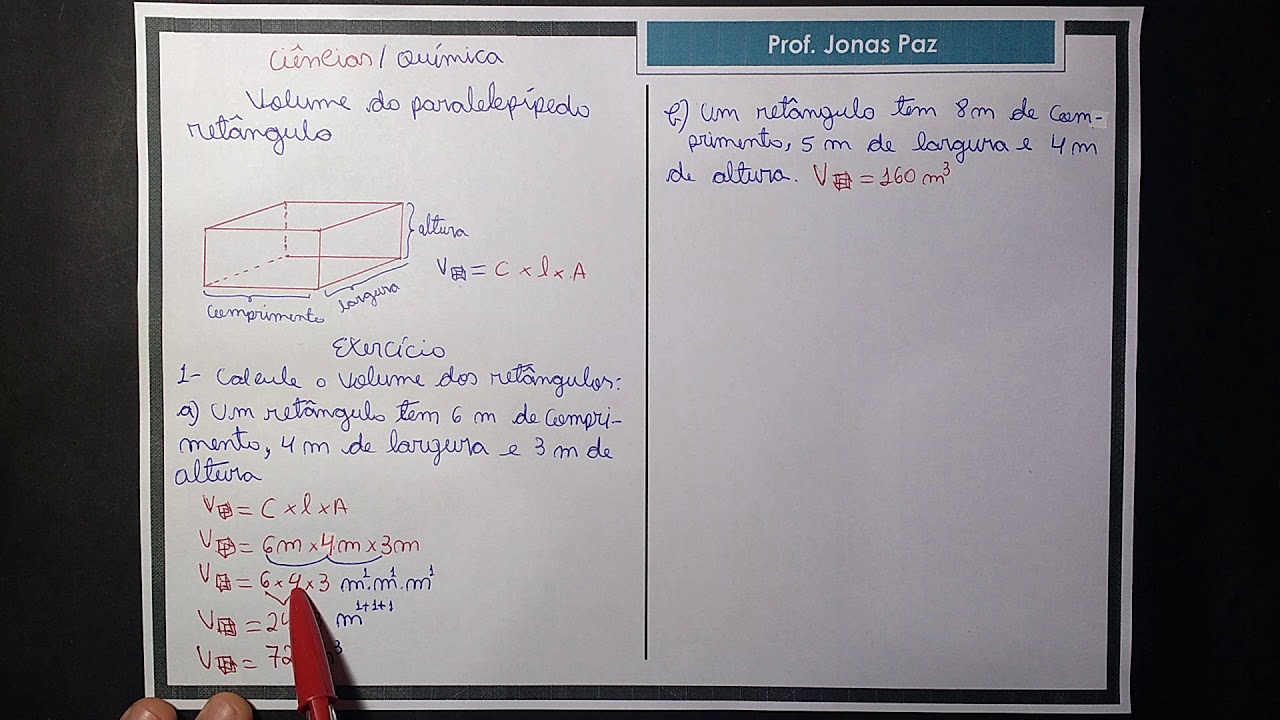 Prof. Jonas Paz
Ciências / Química
Volume do paralelepípedo
retângulo
altura
largura
comprimento
V = C x l x A
Exercício
1- Calcule o volume dos retângulos:
a) Um retângulo tem 6 m de compri-
mento, 4 m de largura e 3 m de
altura
V = C x l x A
V = 6m x 4m x 3m
V = 6 x 4 x 3 m¹. m¹. m¹
V = 24 m¹⁺¹⁺¹
V = 72 m³
b) Um retângulo tem 8m de com-
primento, 5 m de largura e 4 m
de altura. V = 160 m³